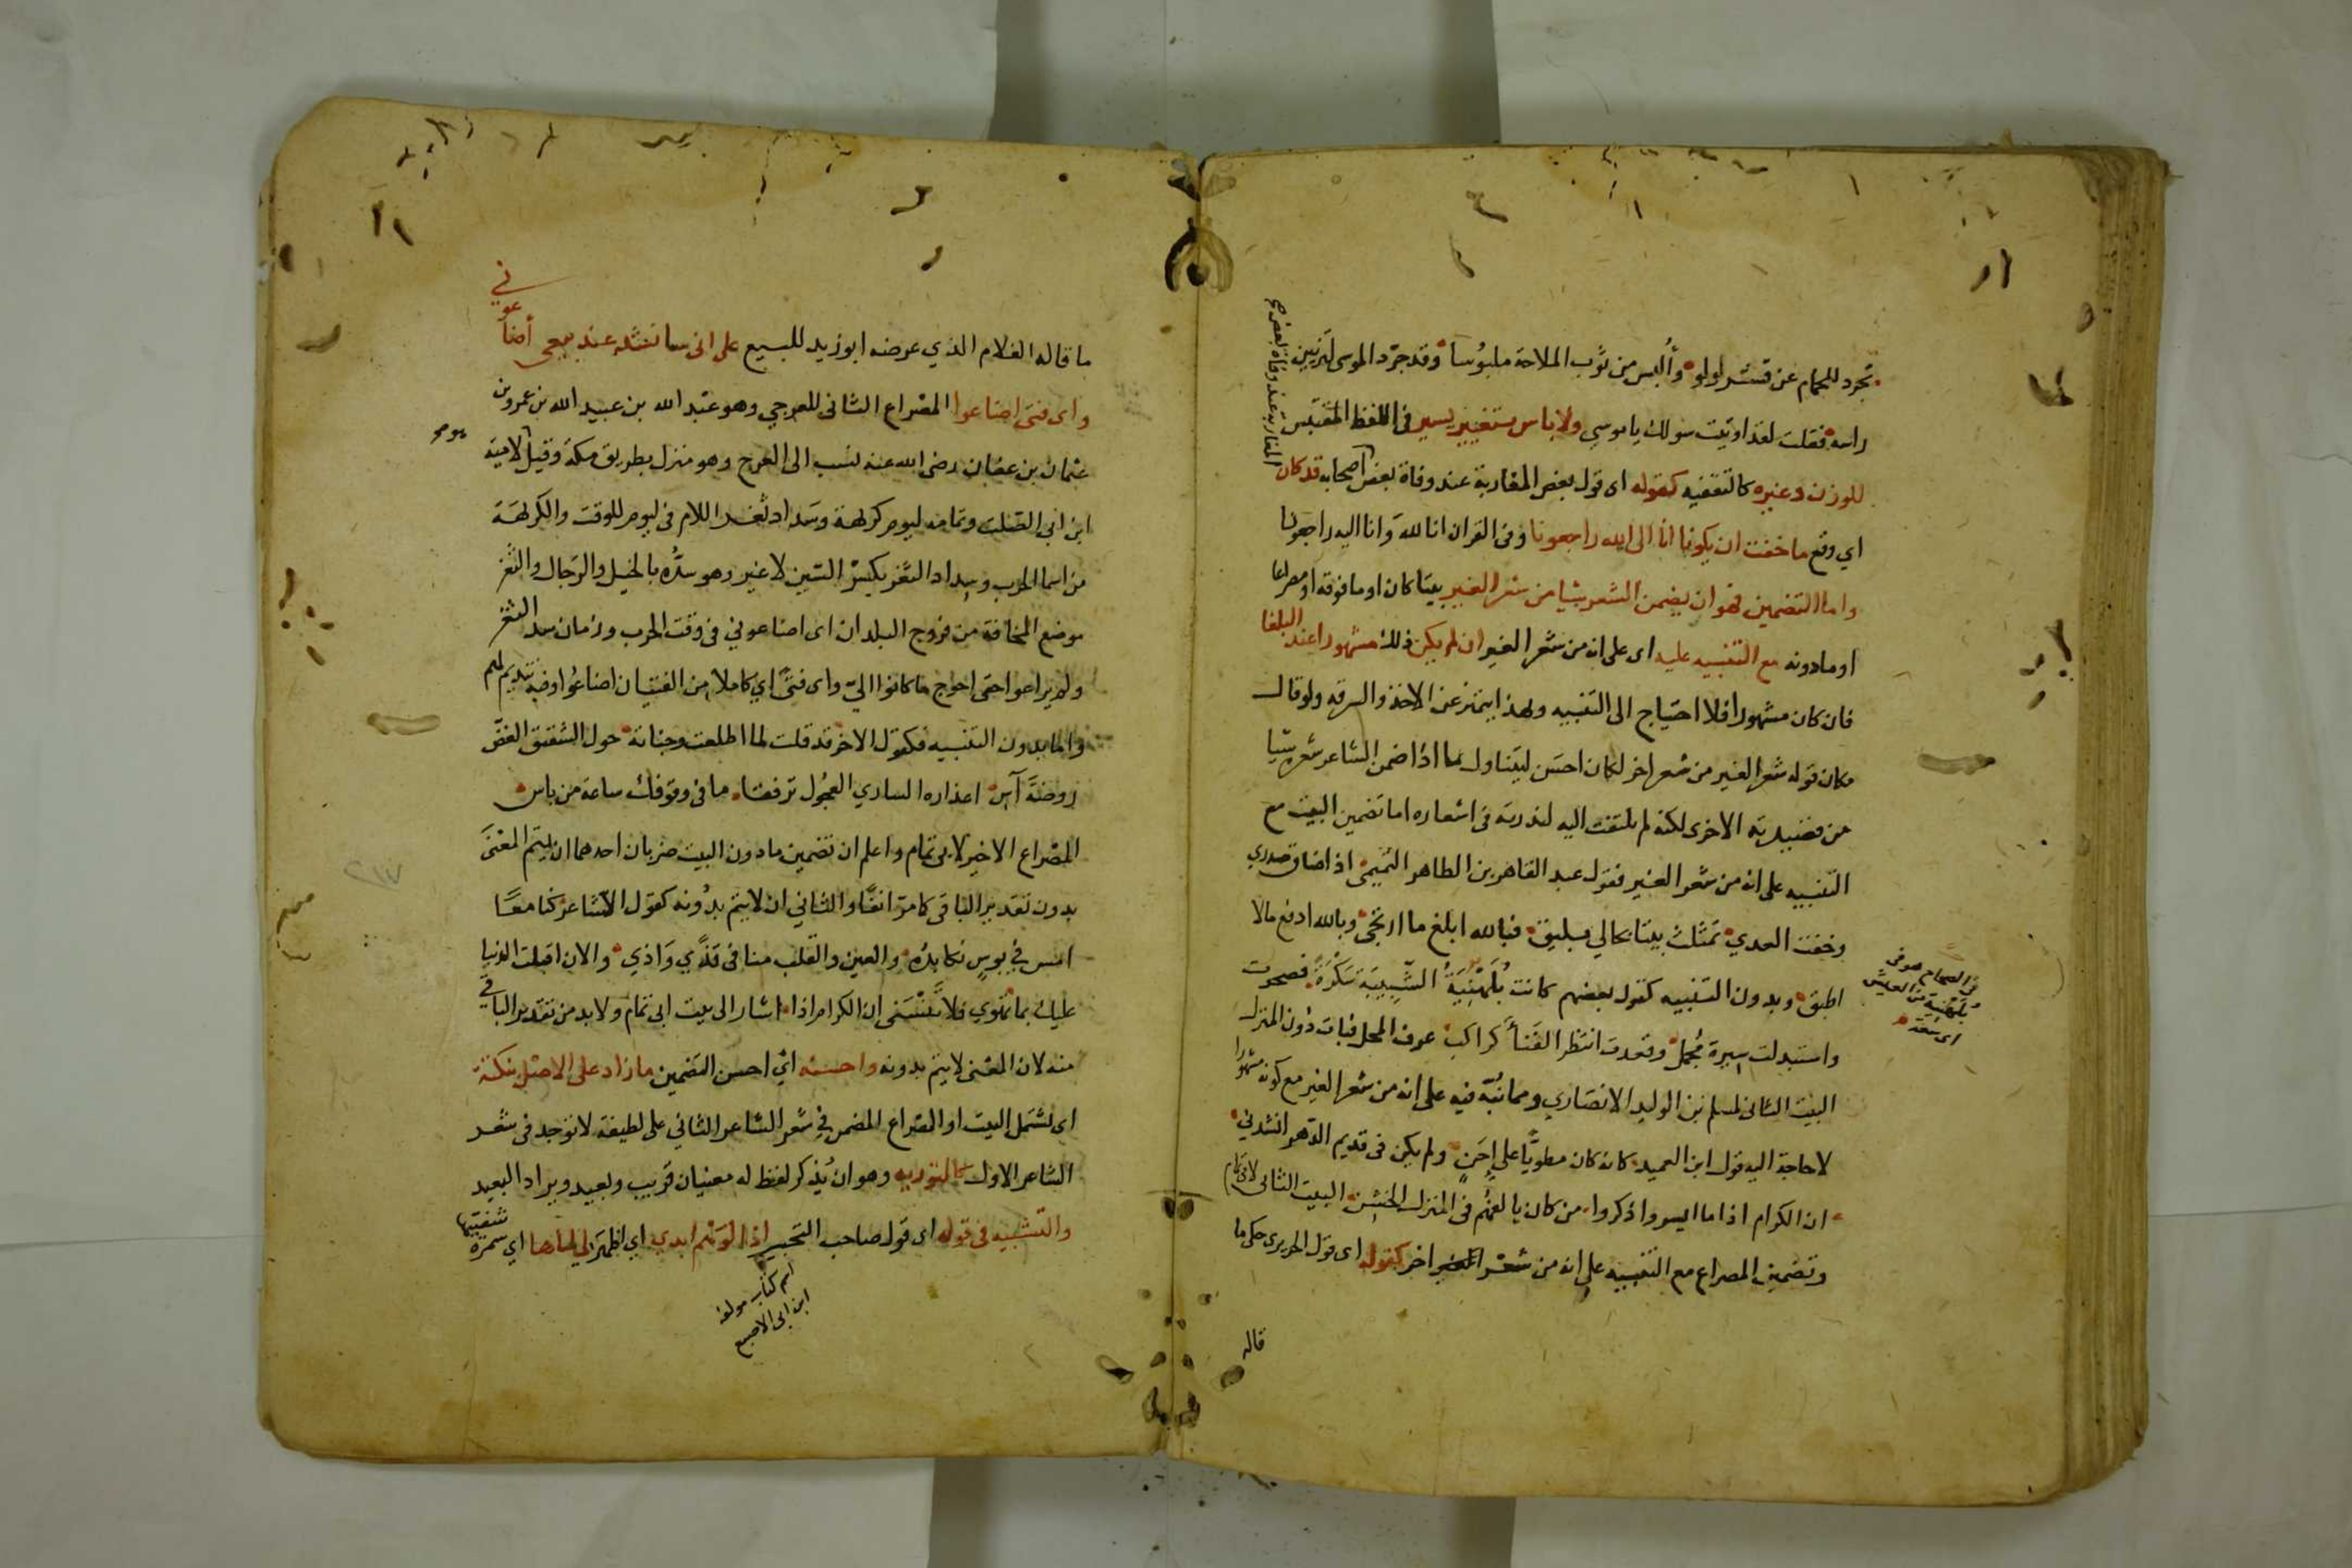 تجرد للحمام عن قشر لولو وألبس من ثوب الملاحة ملبوسا وقد جرّد الموسى لتزيين
راسه فقلت لقد اوتيت سولك يا موسى ولا باس بتغيير يسير في اللفظ المقتبس
للوزن وغيره كالتقفيه كقوله اى قول بعض المغاربة عند وفاة بعض اصحابه قد كان
اي وقع ما خفت ان يكونا انا الى الله راجعونا وفى القران انا لله وانا اليه راجعون
واما التضمين فهو ان يضمن الشعر شيا من شعر الغير بيتا كان او ما فوقه او مصراعا
او ما دونه مع التنبيه عليه اى على انه من شعر الغير ان لم يكن ذلك مشهورا عند البلغا
فان كان مشهورا فلا احتياج الى التنبيه وبهذا يتميز عن الاخذ والسرقه ولو قال
مكان قوله شعر الغير من شعر اخر لكان احسن ليتناول ما اذا ضمن الشاعر شعره شيا
من قصيدته الاخرى لكنه لم يلتفت اليه لندرته فى اشعاره اما تضمين البيت مع
التنبيه على انه من شعر الغير فقول عبد القاهر بن الطاهر التميمى اذا ضاق صدري
وخفت العدي تمثلت بيتا بحالي يليق فبالله ابلغ ما ارتجى وبالله ادفع ما لا
اطيق وبدون التنبيه كقول بعضهم كانت بُلَهْنِيَةُ الشّبِيبَة سَكْرَةً فصحوت
واستبدلت سيرة مجمل وقعدت انتظر الفنأ كراكب عرف المحل فبات دون المنزل
البيت الثانى لمسلم بن الوليد الانصاري ومما نُبّه فيه على انه من شعر الغير مع كونه مشهورا
لا حاجة اليه قول ابن العميد كانه كان مطويًّا على إحَنٍ ولم يكن فى قديم الدهر انشدني
ان الكرام اذا ما ايسروا ذكروا من كان يالفهم فى المنزل الخشن البيت الثانى لابى تمام
وتضمين المصراع مع التنبيه على انه من شعر اخر كقوله اى قول الحريرى حكى ما
المغاربه عند وفاة بعض
فى الصحاح هو فى
بُلَهْنية من العيش
اى سَعَة
قاله
ما قاله الغلام الذي عرضه ابو زيد للبيع على انى سانشد عند بيعى أضا
عوني
واى فتى اضاعوا المصراع الثانى للعرجي وهو عبد الله بن عبيد الله بن عمرو بن
عثمان بن عفان رضى الله عنه نسب الى العرج وهو منزل بطريق مكة وقيل لامية
ابن ابي الصّلت وتمامه ليوم كريهة وسداد ثغر اللام فى ليوم للوقت والكريهة
من اسما الحرب وسداد الثّغر بكسر السّين لا غير وهو سدُّه بالخيل والرجال والثغر
موضع المخافة من فروج البلدان اى اضاعوني فى وقت الحرب وزمان سد الثغر
ولم يراعوا حقى احوج ما كانوا اليّ واى فتى اي كاملا من الفتيان اضاعوا وفيه تنديم لهم
واما بدون التنبيه فكقول الاخر قد قلت لما اطلعت وجناته حول الشقيق الغضّ
روضة آس اعذاره الساري العجول ترفقا ما فى وقوفك ساعة من باس
المصراع الاخير لابى تمام واعلم ان تضمين ما دون البيت ضربان احدهما ان يتم المعنى
بدون تقدير الباقى كما مرّ انفًا والثاني ان لا يتم بدُونه كقول الشاعر كنا معًا
امس في بوسٍ نكابدُه والعين والقلب منا فى قذًي وَاذي والان اقبلت الدنيا
عليك بما تهوي فلا تَنْسَنى ان الكرام اذا اشار الى بيت ابى تمام ولا بد من تقدير الباقي
منه لان المعنى لا يتم بدونه واحسنه ايْ احسن التضمين ما زاد على الاصل بنكتة
اى يشتمل البيت او المصراع المضمن في شعر الشاعر الثاني على لطيفة لا توجد فى شعر
الشاعر الاول كالتوريه وهو ان يُذكر لفظ له معنيان قريب وبعيد ويراد البعيد
والتّشبيه فى قوله اى قول صاحب التحبير اذا الوَهْم ابدي اي اظهَر لي لماها اي سمرة شفتيها
اسم كتاب مولفه
ابن ابي الاصبع
٢١٧